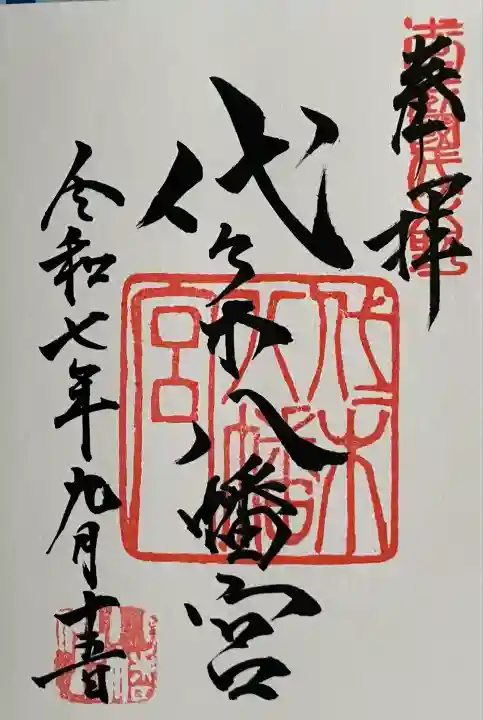 奉拝
代々木八幡宮
令和七年九月十五日
代木
八幡
宮